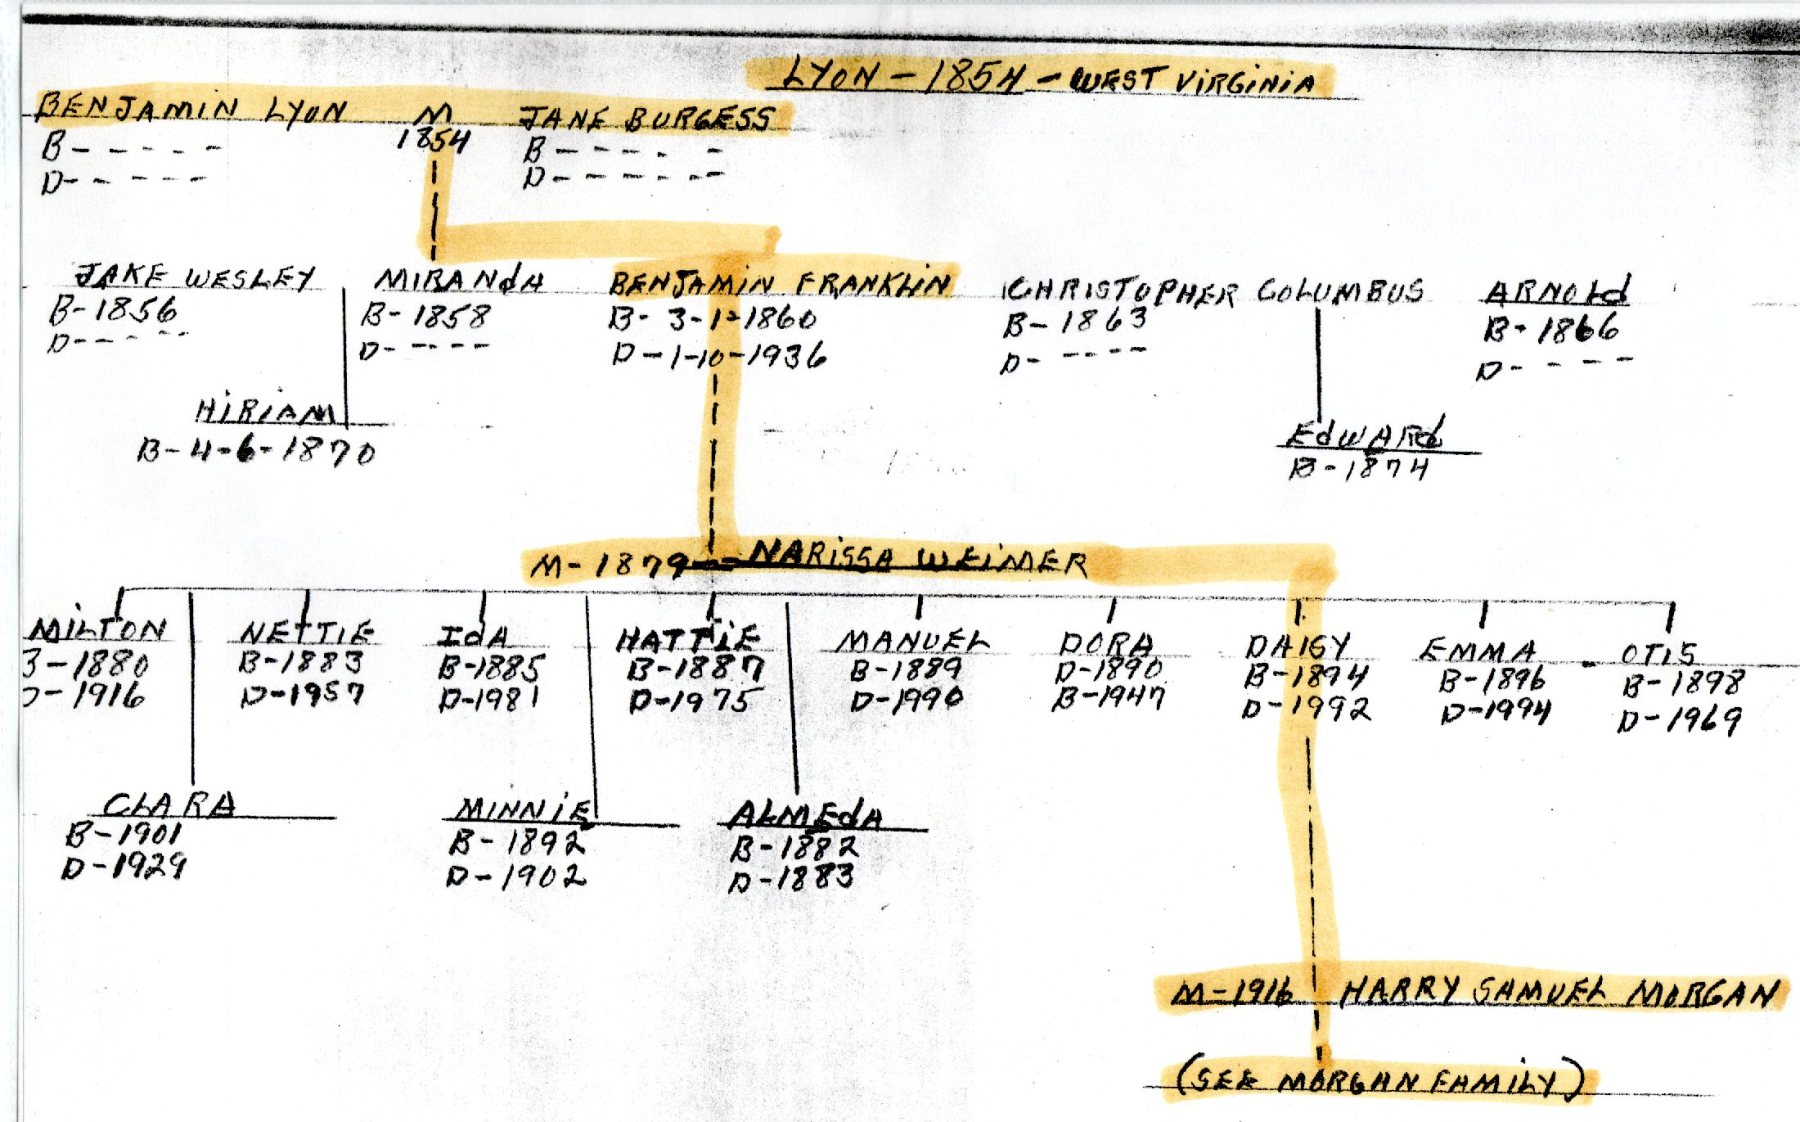 LYON - 1854 - WEST VIRGINIA
BENJAMIN LYON M JANE BURGESS
1854
B - - - - - B - - - - -
D - - - - - - D - - - - - -
JAKE WESLEY MIRANdA BENJAMIN FRANKLIN CHRISTOPHER COLUMBUS ARNOLd
B-1856 B-1858 B-3-1-1860 B-1863 B-1866
D- - - - - D- - - - - D-1-10-1936 D- - - - - D- - - - -
HIRIAM EdWARd
B-4-6-1870 B-1874
M-1879 NARISSA WEIMER
MILTON NETTIE IdA HATTIE MANUEL DORA DAISY EMMA OTIS
B-1880 B-1883 B-1885 B-1887 B-1889 D-1890 B-1894 B-1896 B-1898
D-1916 D-1957 D-1981 D-1975 D-1990 B-1947 D-1992 D-1994 D-1969
CLARA MINNIE ALMEdA
B-1901 B-1892 B-1882
D-1929 D-1902 D-1883
M-1916 HARRY SAMUEL MORGAN
(SEE MORGAN FAMILY)